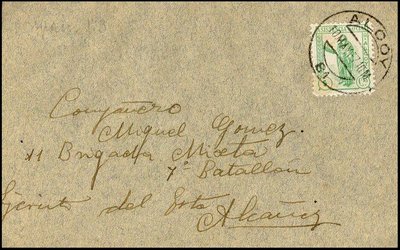 ALCOY
Compañero
Miguel Gomez
11 Brigada Mixta
7º Batallón
Ejercito del Este
Alcañiz